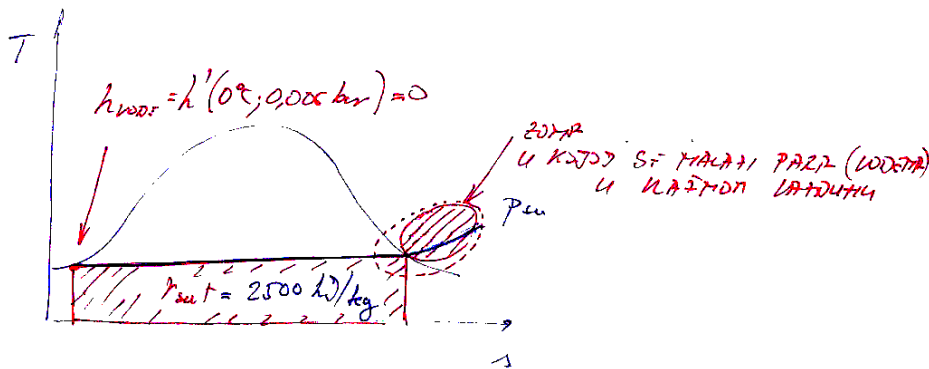 T
h vode = h'(0°C; 0,006 bar) = 0
ZONA
U KOJOJ SE NALAZI PARA (VODENA)
U VLAŽNOM VAZDUHU
r = 2500 kJ/kg
s